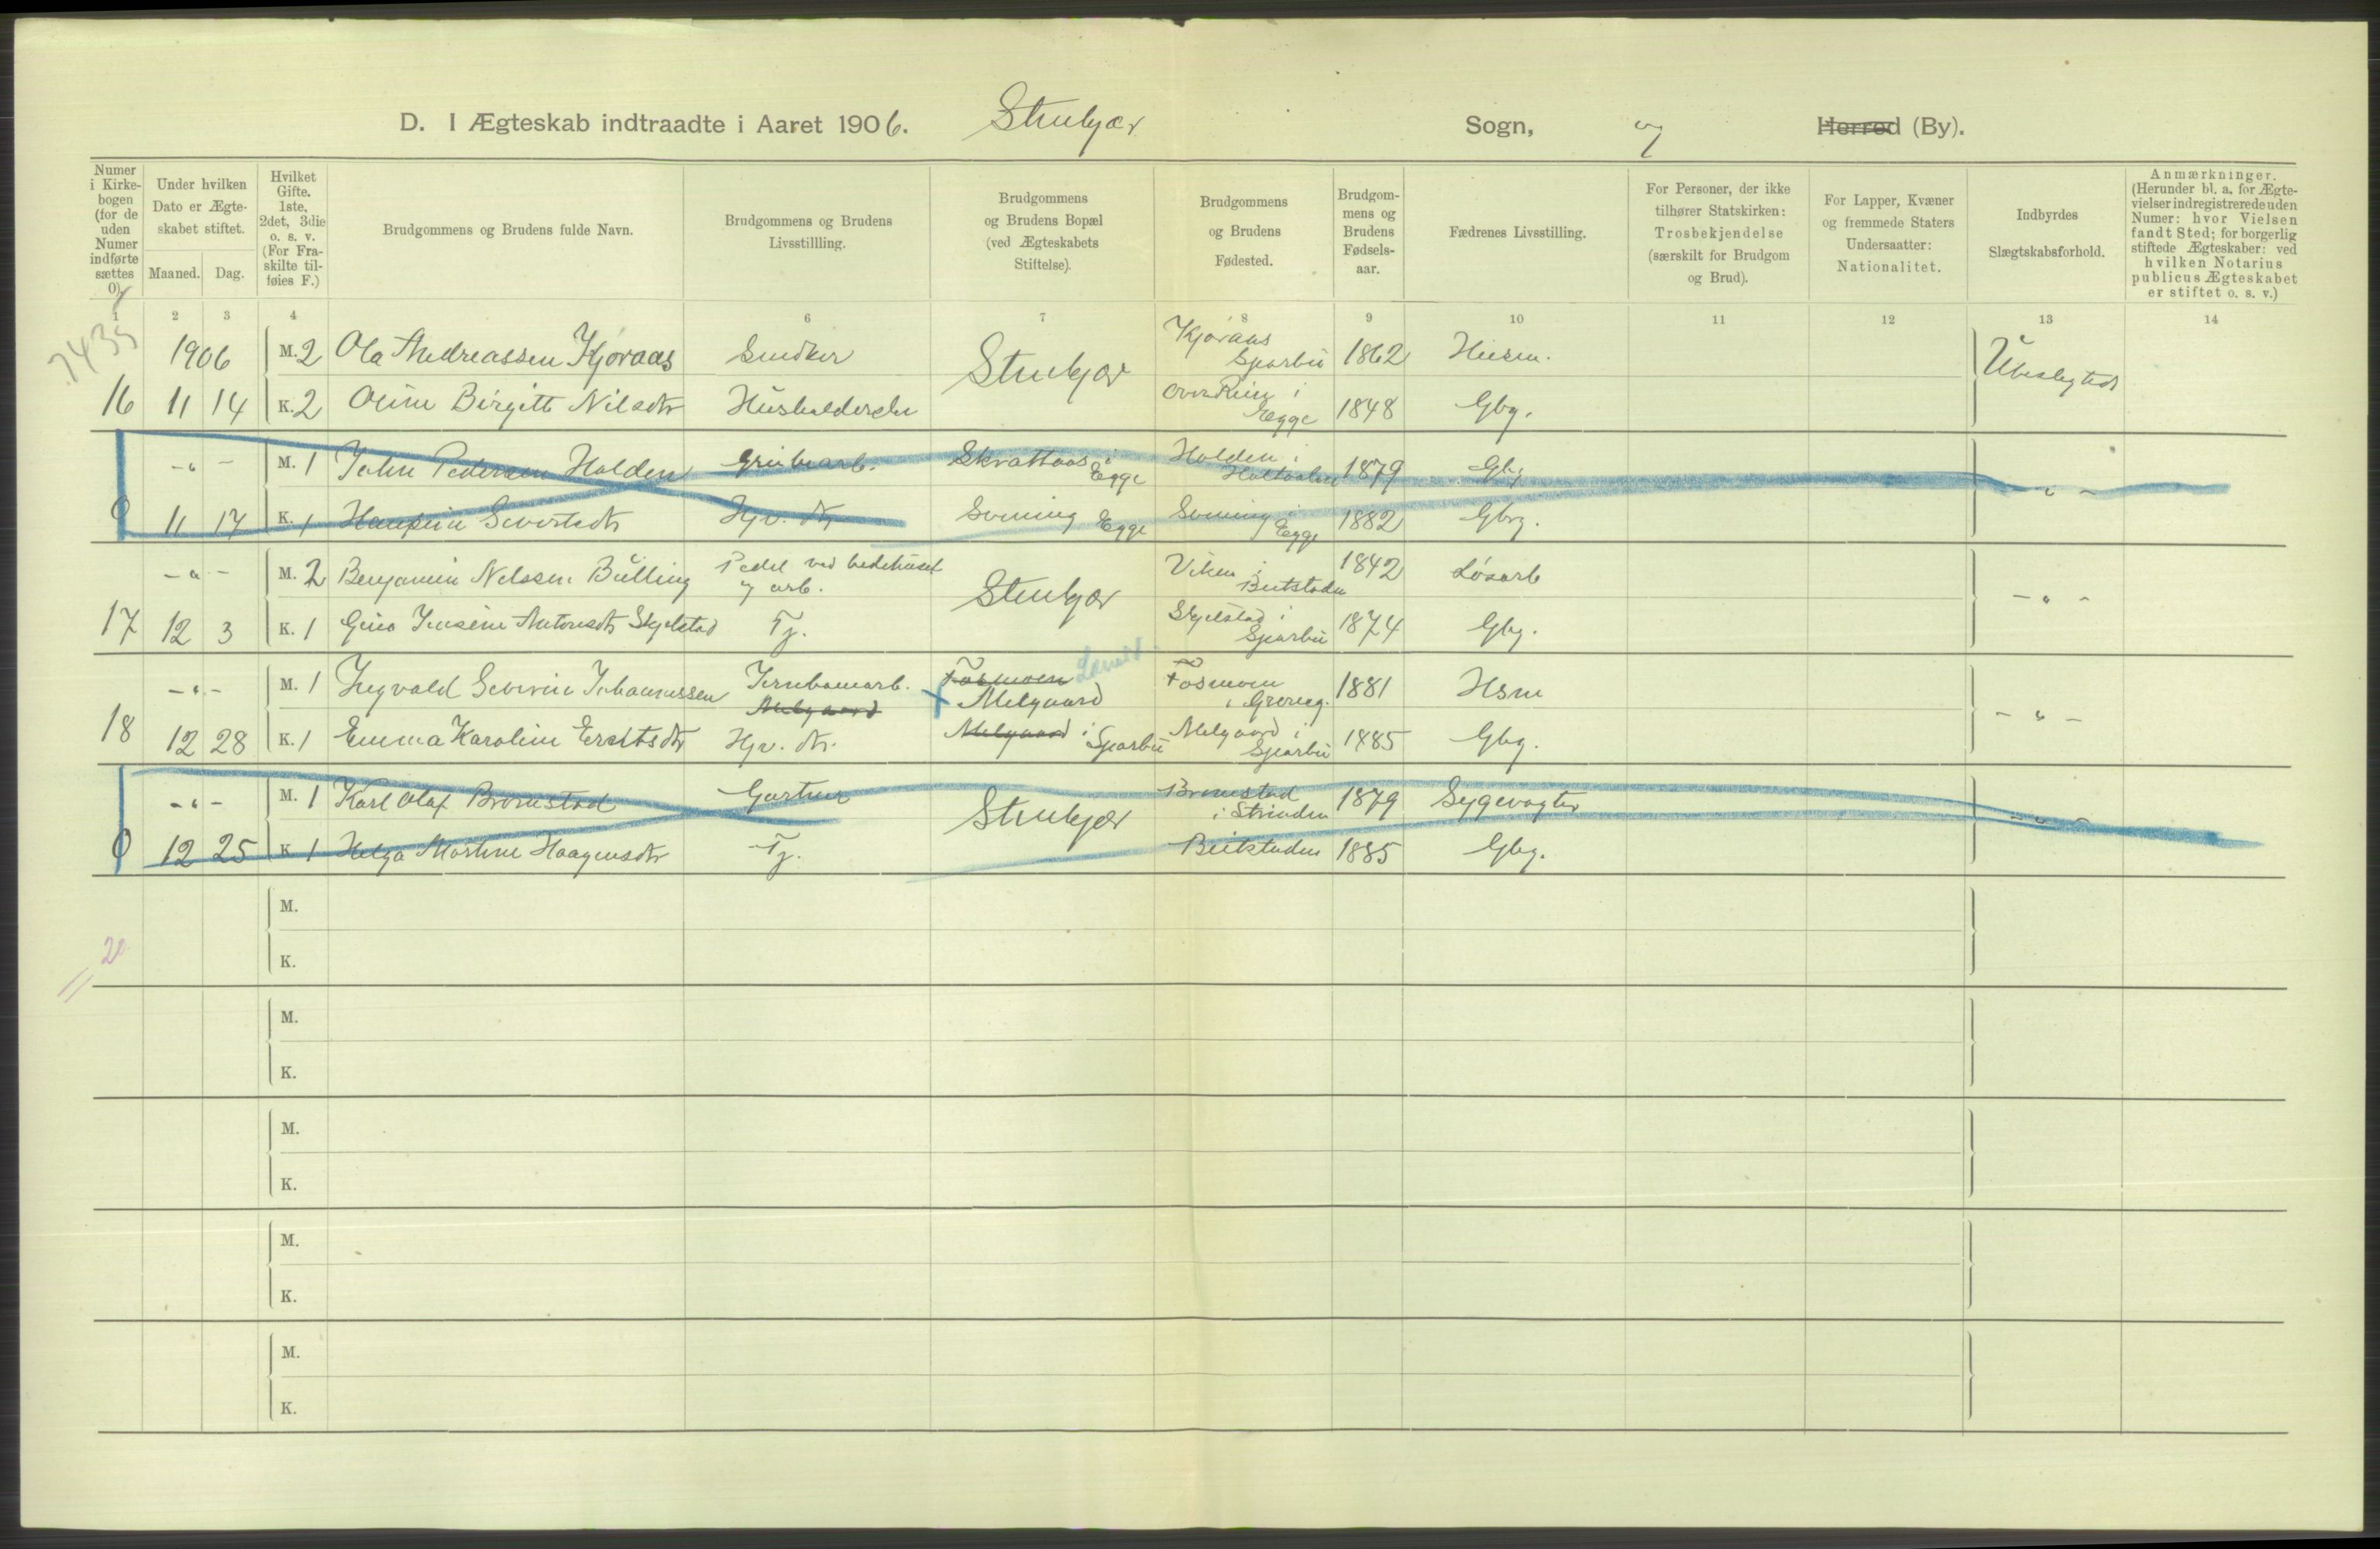 D. I Ægteskab indtraadte i Aaret 1906. Stenkjær Sogn, og Herred (By).
Numer i Kirkebogen (for de uden Numer indførte sættes 0).
Under hvilken Dato er Ægteskabet stiftet.
Maaned. Dag.
Hvilket Gifte. 1ste, 2det, 3die o. s. v. (For Fraskilte tilføies F.)
Brudgommens og Brudens fulde Navn.
Brudgommens og Brudens Livsstillling.
Brudgommens og Brudens Bopæl (ved Ægteskabets Stiftelse).
Brudgommens og Brudens Fødested.
Brudgommens og Brudens Fødselsaar.
Fædrenes Livsstilling.
For Personer, der ikke tilhører Statskirken: Trosbekjendelse (særskilt for Brudgom og Brud).
For Lapper, Kvæner og fremmede Staters Undersaatter: Nationalitet.
Indbyrdes Slægtskabsforhold.
Anmærkninger. (Herunder bl. a. for Ægtevielser indregistrerede uden Numer: hvor Vielsen fandt Sted; for borgerlig stiftede Ægteskaber: ved hvilken Notarius publicus Ægteskabet er stiftet o. s. v.)
1 2 3 4 6 7 8 9 10 11 12 13 14
7435
1906 M. 2 Ola Andreassen Kjøraas Snedker Stenkjær Kjøraas Sparbu 1862 Husm. Ubeslægtede
16 11 14 K. 2 Oline Birgitte Nilsdtr Husholderske i Egge 1848 Gbg.
-"- M. 1 John Pedersen Holden Grubearb. Skrattaas i Egge Holden i Holtaalen 1879 Gbg -"-
0 11 17 K. 1 Sivertsdtr Hjv. dtr Egge i Egge 1882 Gbrg.
-"- M. 2 Benjamin Nelssen Bülling Pedel ved bedehuset og arb. Stenkjær Viken i Beitstaden 1842 Løsarb -"-
17 12 3 K. 1 Gina Jensine Antonsdtr Skjelstad Tj. Skjelstad i Sparbu 1874 Gbg.
-"- M. 1 Ingvald Severin Johannessen Jernbanearb. Melgaard Fosmoen Melgaard Fosmoen i Grong. 1881 Hsm -"-
18 12 28 K. 1 Emma Karoline Hjv. dtr. Melgaard i Sparbu Melgaard i Sparbu 1885 Gbg.
-"- M. 1 Karl Olaf Bromstad Gartner Stenkjær Bromstad i Strinden 1879 Sygevogter -"-
0 12 25 K. 1 Helga Martine Haagensdtr Tj. Beitstaden 1885 Gbg.
M.
20 K.
M.
K.
M.
K.
M.
K.
M.
K.